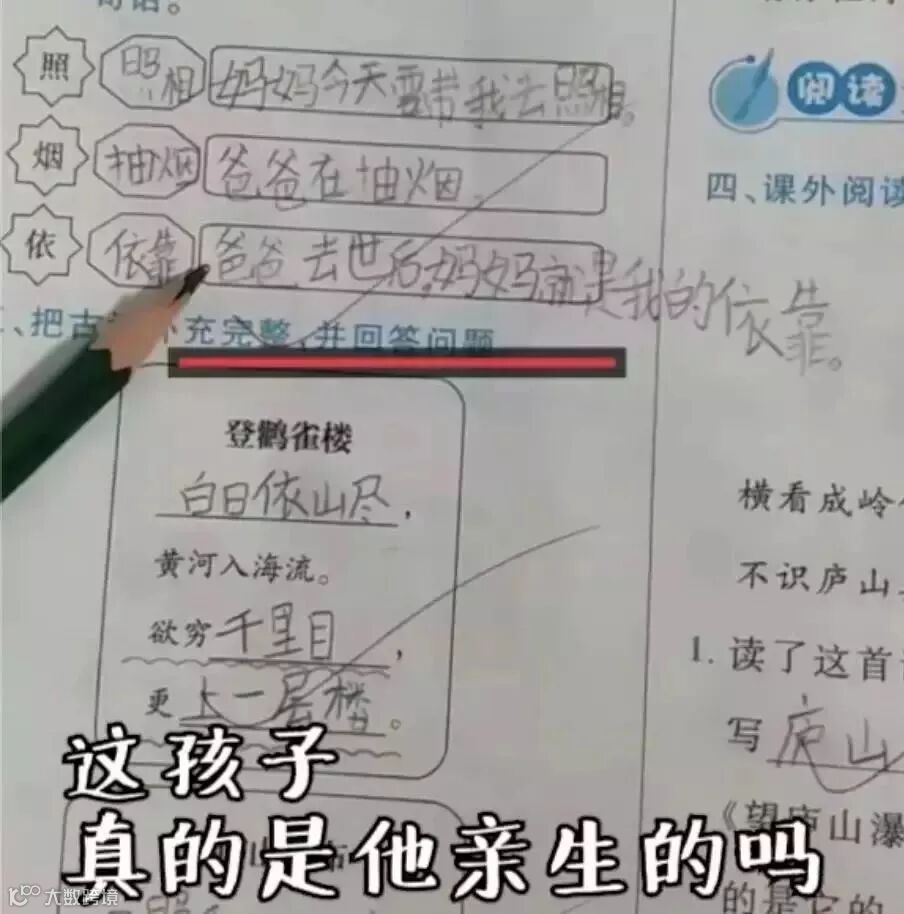 照 照相 妈妈今天要带我去照相。
阅读
烟 抽烟 爸爸在抽烟.
四、课外阅读
依 依靠 爸爸去世后,妈妈就是我的依靠。
、把古 充完整,并回答问题
登鹳雀楼
白日依山尽,
黄河入海流。
欲穷千里目,
更上一层楼。
横看成岭
不识庐山
1.读了这首
写庐山
《望庐山瀑
的是它的
这孩子
真的是他亲生的吗
大数跨境